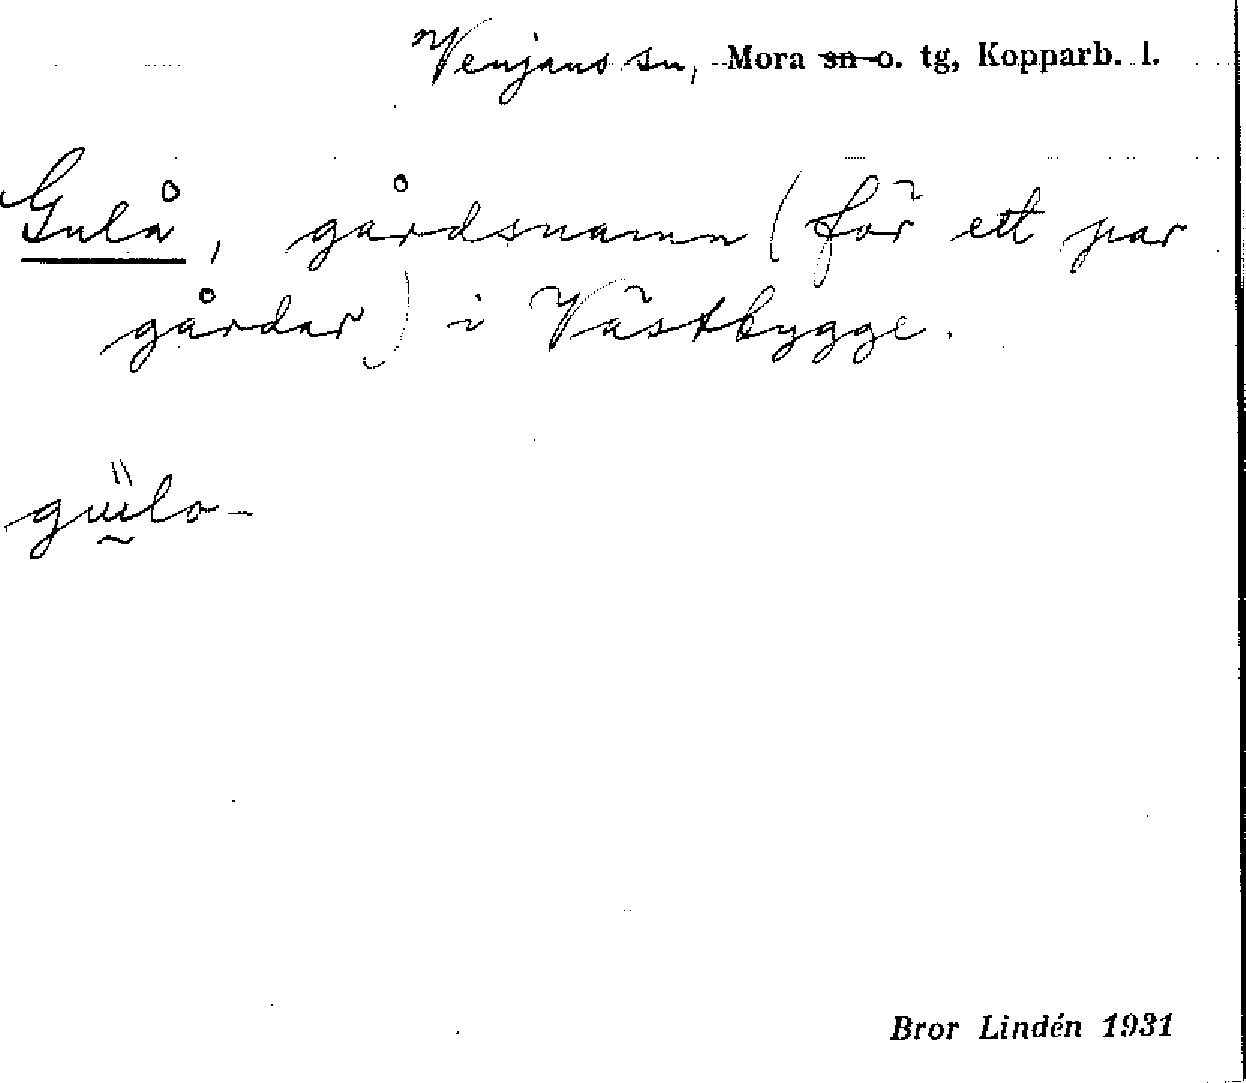 Venjans sn, Mora sn o. tg, Kopparb. l.
Gulå, gårdsnamn (för ett par
gårdar) i Västbygge.
Bror Lindén 1931